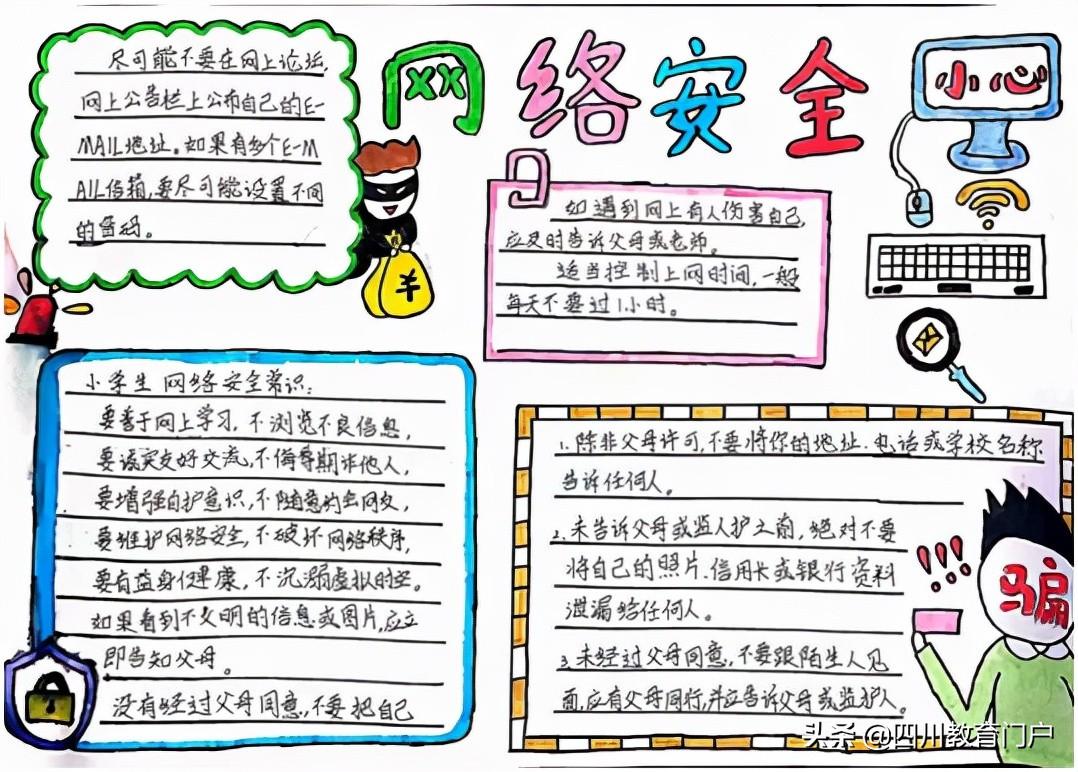 网络安全
小心
尽可能不要在网上论坛,
网上公告栏上公布自己的E-
MAIL地址。如果有多个E-M
AIL信箱,要尽可能设置不同
的密码。
¥
如遇到网上有人伤害自己,
应及时告诉父母或老师。
适当控制上网时间,一般
每天不要过1小时。
小学生网络安全常识:
要善于网上学习,不浏览不良信息,
要诚实友好交流,不侮辱期诈他人,
要增强自护意识,不随意约会网友,
要维护网络安全,不破坏网络秩序,
要有益身心健康,不沉溺虚拟时空。
如果看到不文明的信息或图片,应立
即告知父母。
没有经过父母同意,不要把自己
1.除非父母许可,不要将你的地址.电话或学校名称
告诉任何人。
2.未告诉父母或监人护之前,绝对不要
将自己的照片.信用卡或银行资料
泄漏给任何人。
3.未经过父母同意,不要跟陌生人见
面,应有父母同行,并应告诉父母或监护人。
!!!
骗
头条 @四川教育门户